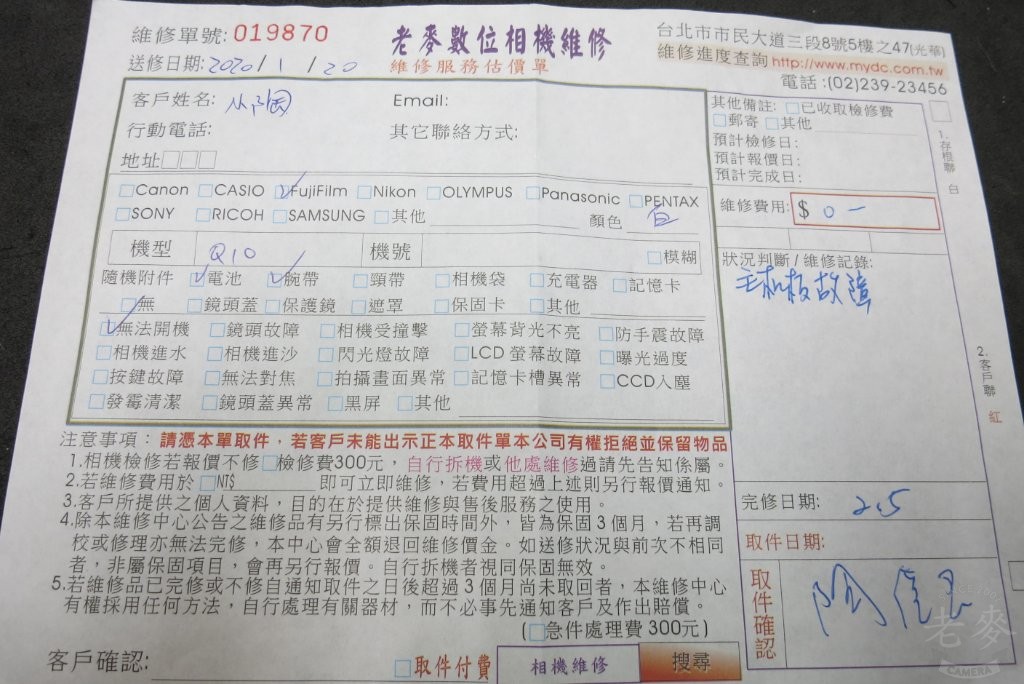 維修單號: 019870
送修日期: 2020 / 1 / 20
老麥數位相機維修
維修服務估價單
台北市市民大道三段8號5樓之47(光華)
維修進度查詢 http://www.mydc.com.tw
電話 :(02)239-23456
客戶姓名:
Email:
行動電話:
其它聯絡方式:
地址□□□
□Canon □CASIO ☑FujiFilm □Nikon □OLYMPUS □Panasonic □PENTAX
□SONY □RICOH □SAMSUNG □其他 顏色 白
機型 Q10 機號 □模糊
隨機附件 ☑電池 ☑腕帶 □頸帶 □相機袋 □充電器 □記憶卡
□無 □鏡頭蓋 □保護鏡 □遮罩 □保固卡 □其他
☑無法開機 □鏡頭故障 □相機受撞擊 □螢幕背光不亮 □防手震故障
□相機進水 □相機進沙 □閃光燈故障 □LCD 螢幕故障 □曝光過度
□按鍵故障 □無法對焦 □拍攝畫面異常 □記憶卡槽異常 □CCD入塵
□發霉清潔 □鏡頭蓋異常 □黑屏 □其他
其他備註: □已收取檢修費
□郵寄 □其他
預計檢修日:
預計報價日:
預計完成日:
維修費用: $ 0 -
狀況判斷 / 維修記錄:
主机板故障
完修日期: 2.5
取件日期:
取件確認
1.存根聯 白
2.客戶聯 紅
注意事項：請憑本單取件，若客戶未能出示正本取件單本公司有權拒絕並保留物品
1.相機檢修若報價不修□檢修費300元，自行拆機或他處維修過請先告知係屬。
2.若維修費用於 □NT$ 即可立即維修，若費用超過上述則另行報價通知。
3.客戶所提供之個人資料，目的在於提供維修與售後服務之使用。
4.除本維修中心公告之維修品有另行標出保固時間外，皆為保固3個月，若再調
校或修理亦無法完修，本中心會全額退回維修價金。如送修狀況與前次不相同
者，非屬保固項目，會再另行報價。自行拆機者視同保固無效。
5.若維修品已完修或不修自通知取件之日後超過 3 個月尚未取回者，本維修中心
有權採用任何方法，自行處理有關器材，而不必事先通知客戶及作出賠償。
(□急件處理費 300元)
客戶確認:
□取件付費
相機維修 搜尋
老麥
CAMERA